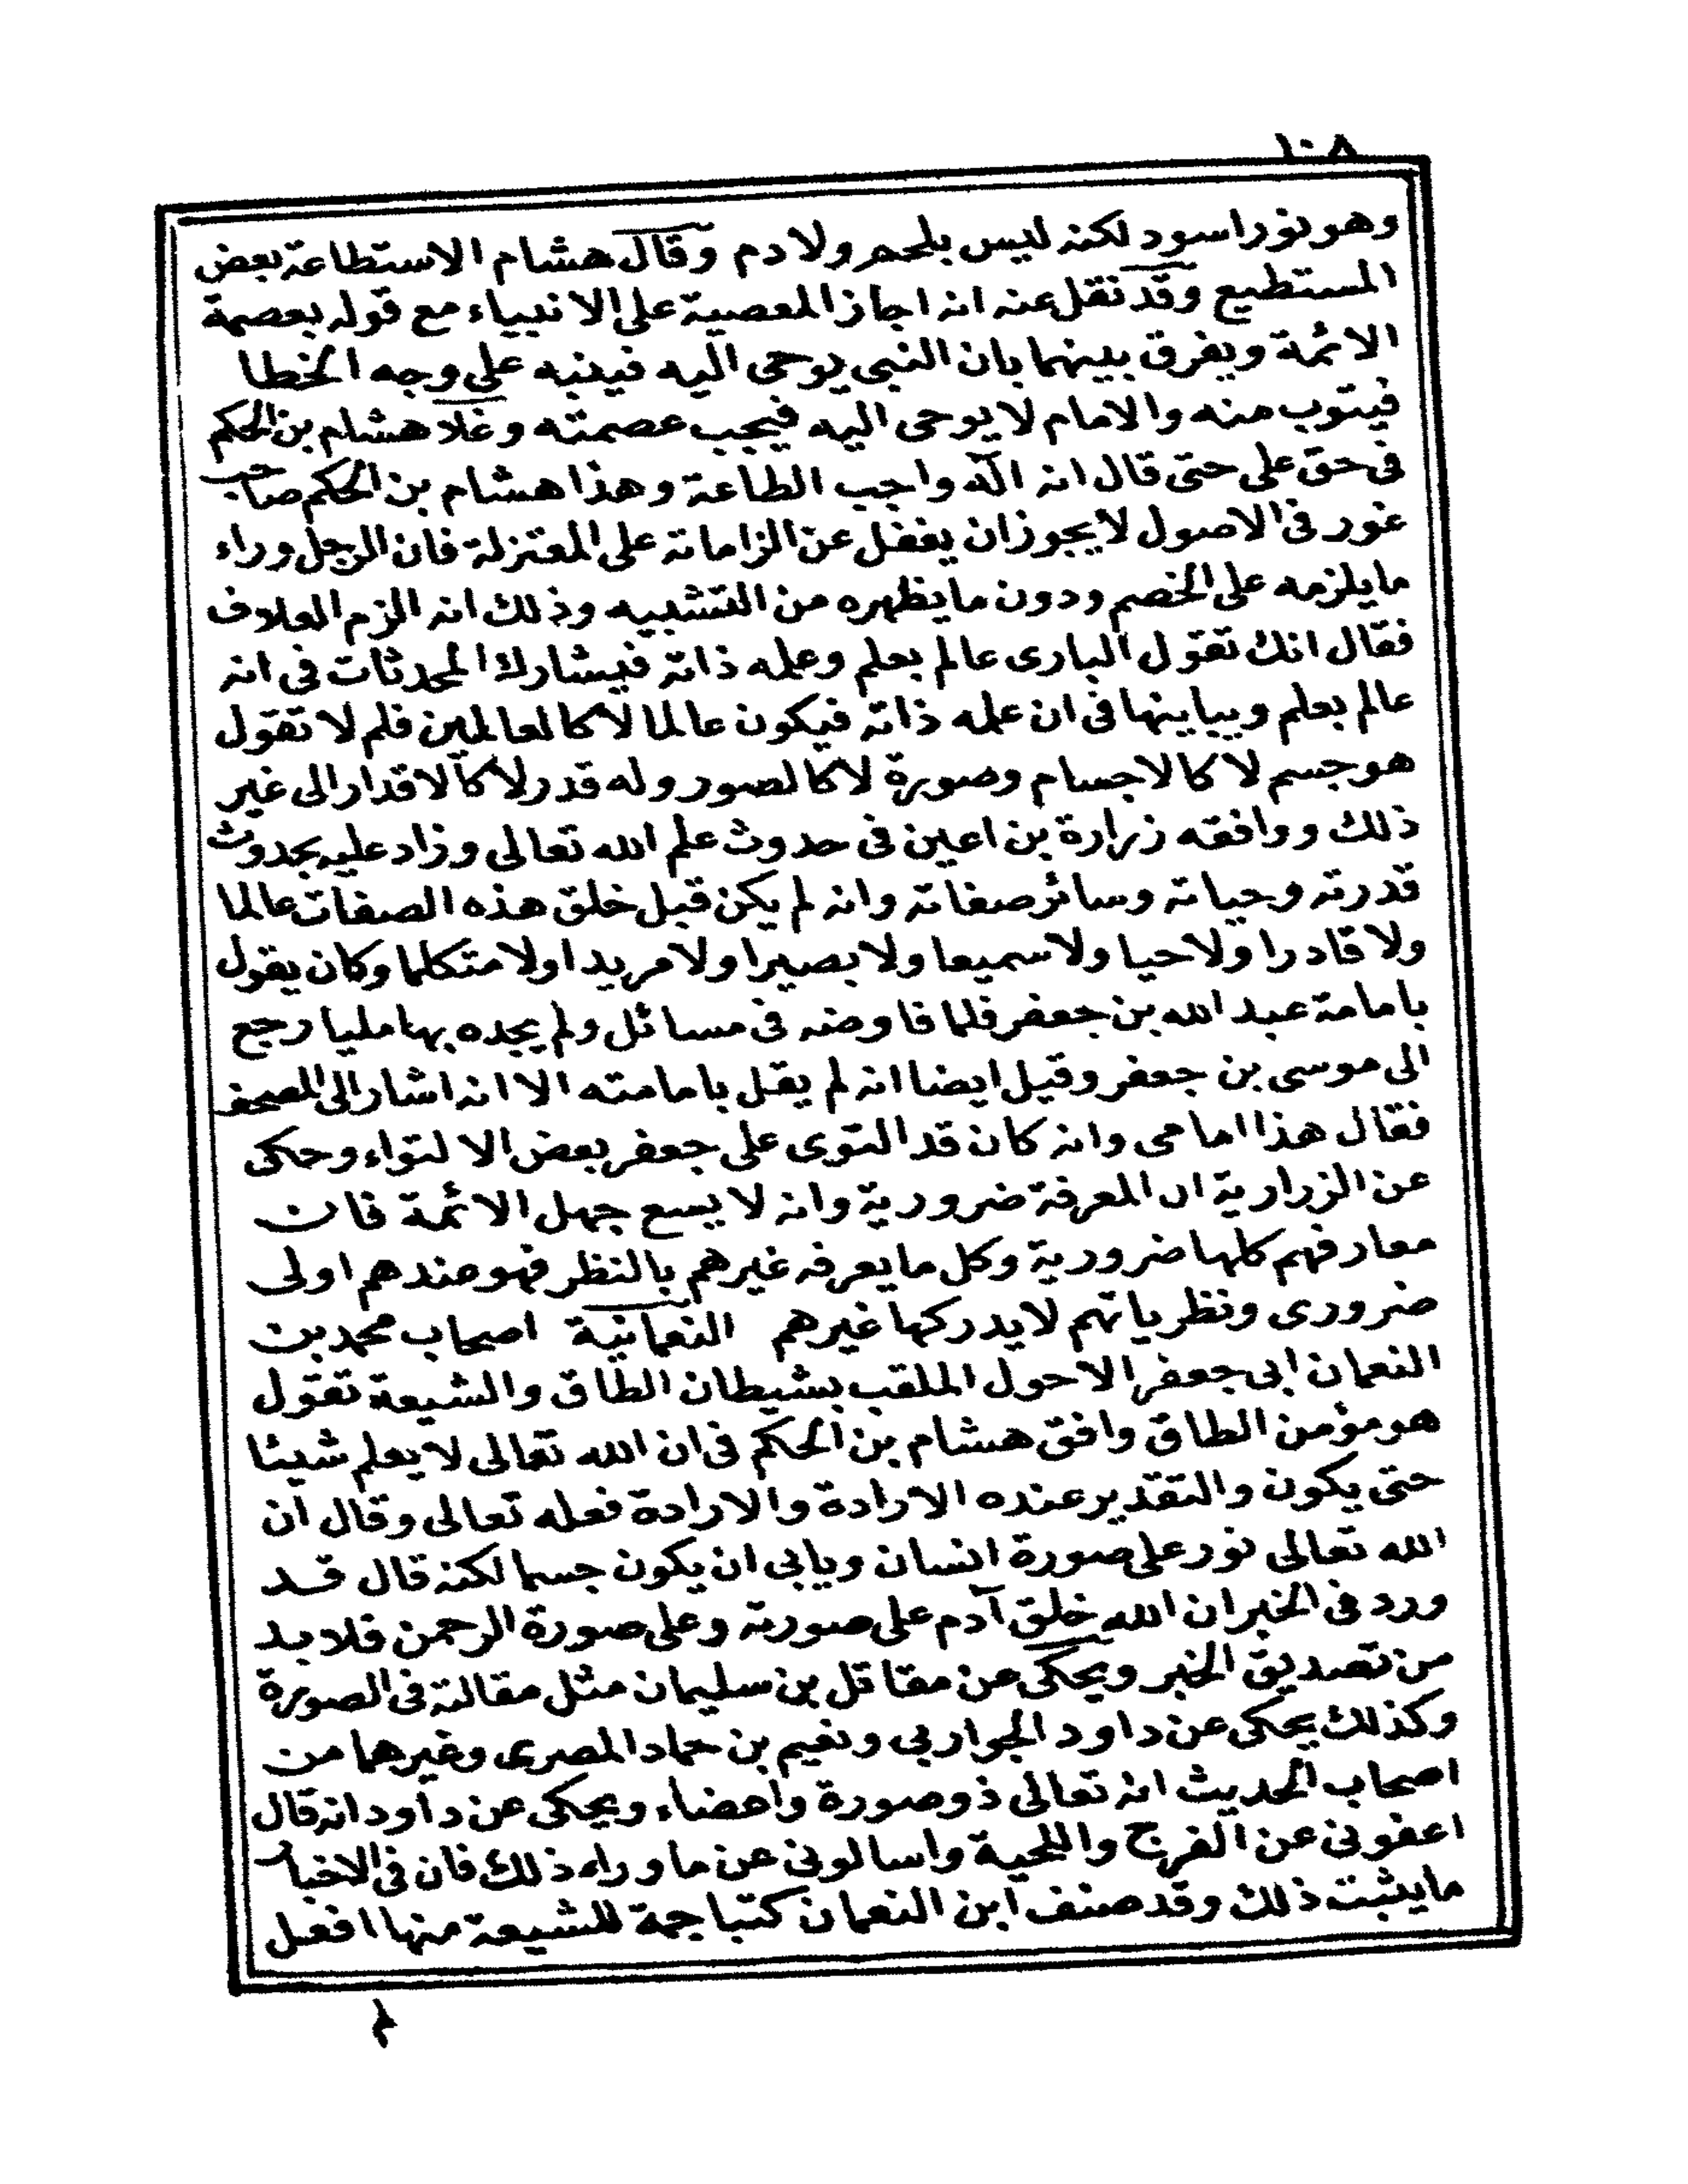 ١٠٨
وهو نور اسود لكنه ليس بلحم ولا دم وقال هشام الاستطاعة بعض
المستطيع وقد نقل عنه انه اجاز المعصية على الانبياء مع قوله بعصمة
الائمة ويفرق بينهما بان النبى يوحى اليه فينبه على وجه الخطا
فيتوب منه والامام لا يوحى اليه فيجب عصمته وغلا هشام بن الحكم
فى حق على حتى قال انه اله واجب الطاعة وهذا هشام بن الحكم صاحب
غور فى الاصول لا يجوز ان يغفل عن الزاماته على المعتزلة فان الرجل وراء
ما يلزمه على الخصم ودون ما يظهره من التشبيه وذلك انه الزم العلاف
فقال انك تقول البارى عالم بعلم وعلمه ذاته فيشارك المحدثات فى انه
عالم بعلم ويباينها فى ان علمه ذاته فيكون عالما لا كالعالمين فلم لا تقول
هو جسم لا كالاجسام وصورة لا كالصور وله قدر لا كالاقدار الى غير
ذلك ووافقه زرارة بن اعين فى حدوث علم الله تعالى وزاد عليه بحدوث
قدرته وحياته وسائر صفاته وانه لم يكن قبل خلق هذه الصفات عالما
ولا قادرا ولا حيا ولا سميعا ولا بصيرا ولا مريدا ولا متكلما وكان يقول
بامامة عبد الله بن جعفر فلما فاوضه فى مسائل ولم يجده بها مليا رجع
الى موسى بن جعفر وقيل ايضا انه لم يقل بامامته الا انه اشار الى المصحف
فقال هذا امامى وانه كان قد التوى على جعفر بعض الالتواء وحكى
عن الزرارية ان المعرفة ضرورية وانه لا يسع جهل الائمة فان
معارفهم كلها ضرورية وكل ما يعرفه غيرهم بالنظر فهو عندهم اولى
ضرورى ونظرياتهم لا يدركها غيرهم النعمانية اصحاب محمد بن
النعمان ابى جعفر الاحول الملقب بشيطان الطاق والشيعة تقول
هو مؤمن الطاق وافق هشام بن الحكم فى ان الله تعالى لا يعلم شيئا
حتى يكون والتقدير عنده الارادة والارادة فعله تعالى وقال ان
الله تعالى نور على صورة انسان ويابى ان يكون جسما لكنه قال قد
ورد فى الخبر ان الله خلق آدم على صورته وعلى صورة الرحمن فلا بد
من تصديق الخبر ويحكى عن مقاتل بن سليمان مثل مقالته فى الصورة
وكذلك يحكى عن داود الجواربي ونعيم بن حماد المصرى وغيرهما من
اصحاب الحديث انه تعالى ذو صورة واعضاء ويحكى عن داود انه قال
اعفونى عن الفرج واللحية واسالونى عن ما وراء ذلك فان فى الاخبار
ما يثبت ذلك وقد صنف ابن النعمان كتبا جمة للشيعة منها افعل
لم